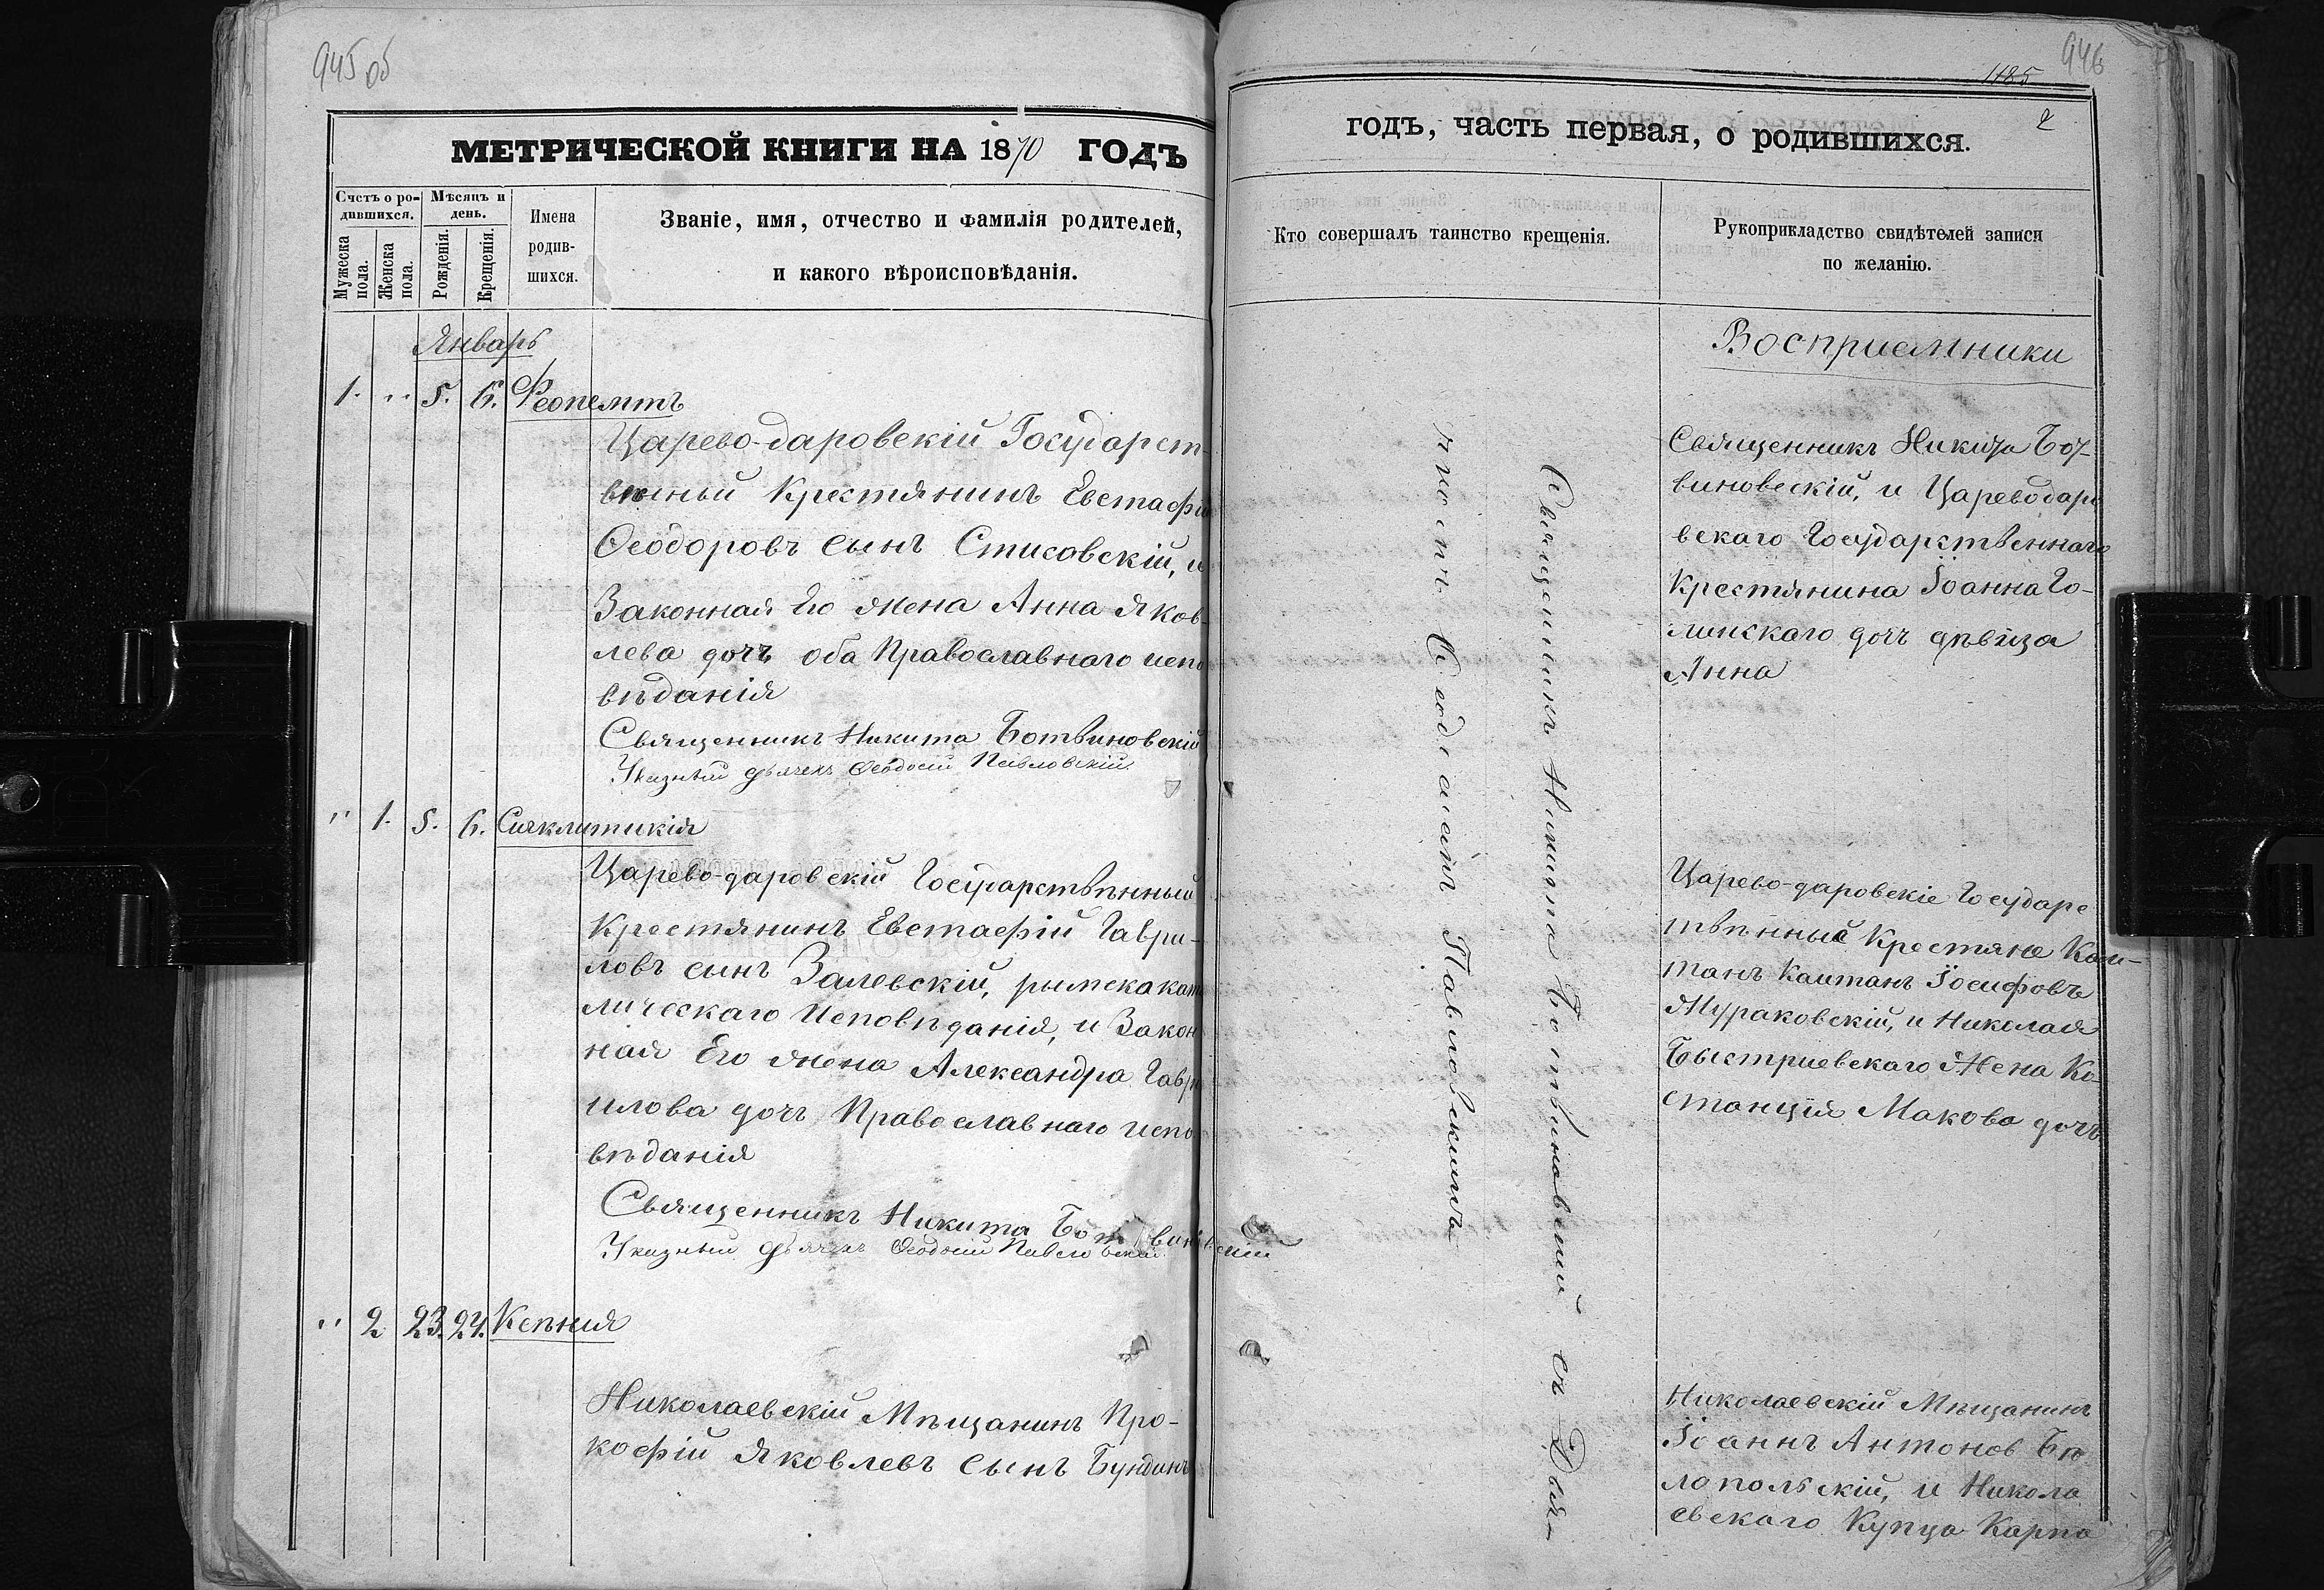 945 об
МЕТРИЧЕСКОЙ КНИГИ НА 1870 ГОДЪ
Счетъ о ро-
дившихся.
Мѣсяцъ и
день.
Мужеска
пола.
Женска
пола.
Рожденія.
Крещенія.
Имена
родив-
шихся.
Званіе, имя, отчество и фамилія родителей,
и какого вѣроисповѣданія.
Январь
1. " 5. 6. Феопемптъ
Царево-даровскій Государст-
венный Крестянинъ Евстафій
Ѳеодоровъ сынъ Стисовскій, и
Законная Его жена Анна Яков-
лева дочъ оба Православнаго испо
вѣданія
Священникъ Никита Ботвиновскій
Указный дьячекъ Ѳеодосій Павловскій
" 1. 5. 6. Синклитикія
Царево-даровскій Государствѣнный
Крестянинъ Евстафій Гаври-
ловъ сынъ Залевскій, рымскакат
лическаго Исповѣданія, и Закон
ная Его жена Александра Гавр
илова дочъ Православнаго испо
вѣданія
Священникъ Никита Ботвиновскій
Указный дьячекъ Ѳеодосій Павловскій
" 2 23. 24. Ксѣния
Николаевскій Мѣщанинъ Про-
кофій Яковлевъ сынъ Бундинъ
946
1185
2
годъ, часть первая, о родившихся.
Кто совершалъ таинство крещенія.
Рукоприкладство свидѣтелей записи
по желанію.
Священникъ Никита Ботвиновскій съ Дья-
чкомъ Ѳеодосіемъ Павловскимъ
Восприемники
Священникъ Никита Бот-
виновскій, и Цареводаро
вскаго Государственнаго
Крестянина Іоанна Го-
линскаго дочъ дѣвица
Анна
Царево-даровскіе Государс
твѣнные Крестяне Каи-
танъ Каитанъ Іосифовъ
Мураковскій, и Николая
Быстриевскаго Жена Ко-
станція Макова дочъ
Николаевскій Мѣщанинъ
Іоаннъ Антонов Бѣ
лопольскій, и Никола
евскаго Купца Карпа